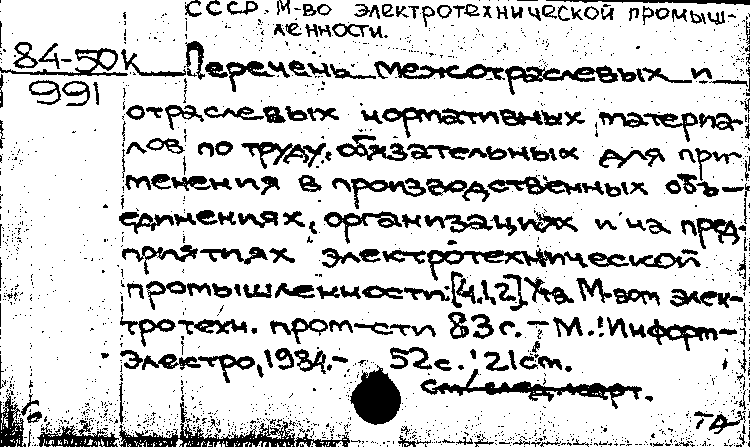 СССР. М-во электротехнической промыш-
ленности.
84-50к
991
Перечень межотраслевых и
отраслевых нормативных материа-
лов по труду, обязательных для при-
менения в производственных объ-
единениях, организациях и на пред-
приятиях электротехнической
промышленности: [Ч.1,2]. Утв. М-вом элек-
тротехн. пром-сти 83 г. - М.: Информ-
электро, 1984. - 52 с.; 21 см.
См/след.карт.
6